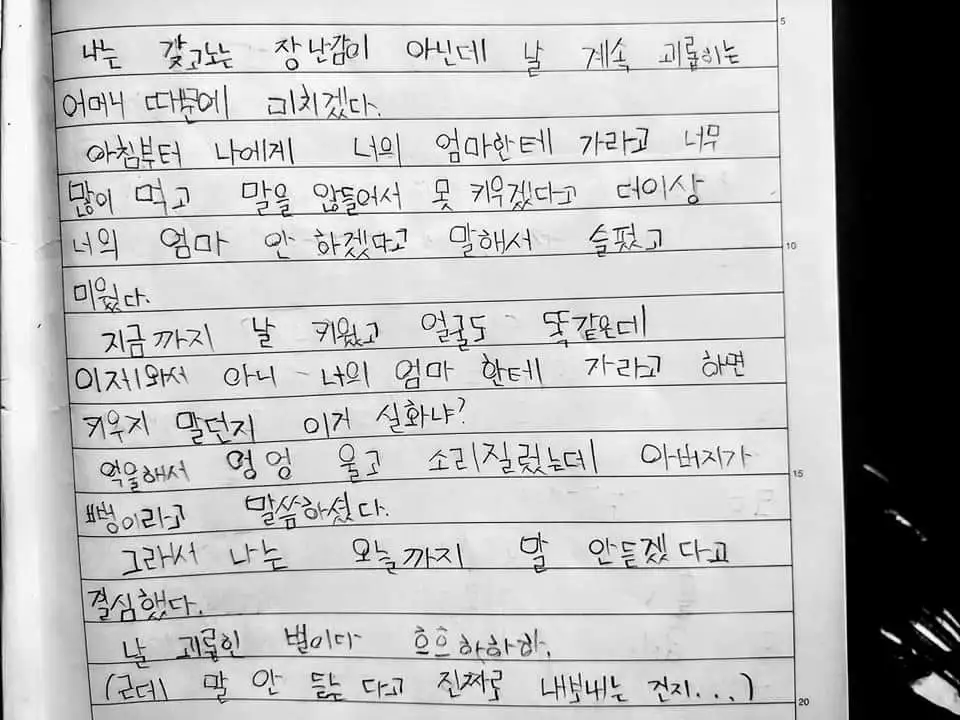 5
나는 갖고노는 장난감이 아닌데 날 계속 괴롭히는
어머니 때문에 미치겠다.
아침부터 나에게 너의 엄마한테 가라고 너무
많이 먹고 말을 않들어서 못 키우겠다고 더이상
너의 엄마 안 하겠다고 말해서 슬펐고
10
미웠다.
지금까지 날 키웠고 얼굴도 똑같은데
이제와서 아니 너의 엄마 한테 가라고 하면
키우지 말던지 이거 실화냐?
억울해서 엉엉 울고 소리질렀는데 아버지가
15
뻥이라고 말씀하셨다.
그래서 나는 오늘까지 말 안듣겠다고
결심했다.
날 괴롭힌 벌이다 흐흐하하하.
(근데 말 안 듣는다고 진짜로 내보내는 건지...)
20